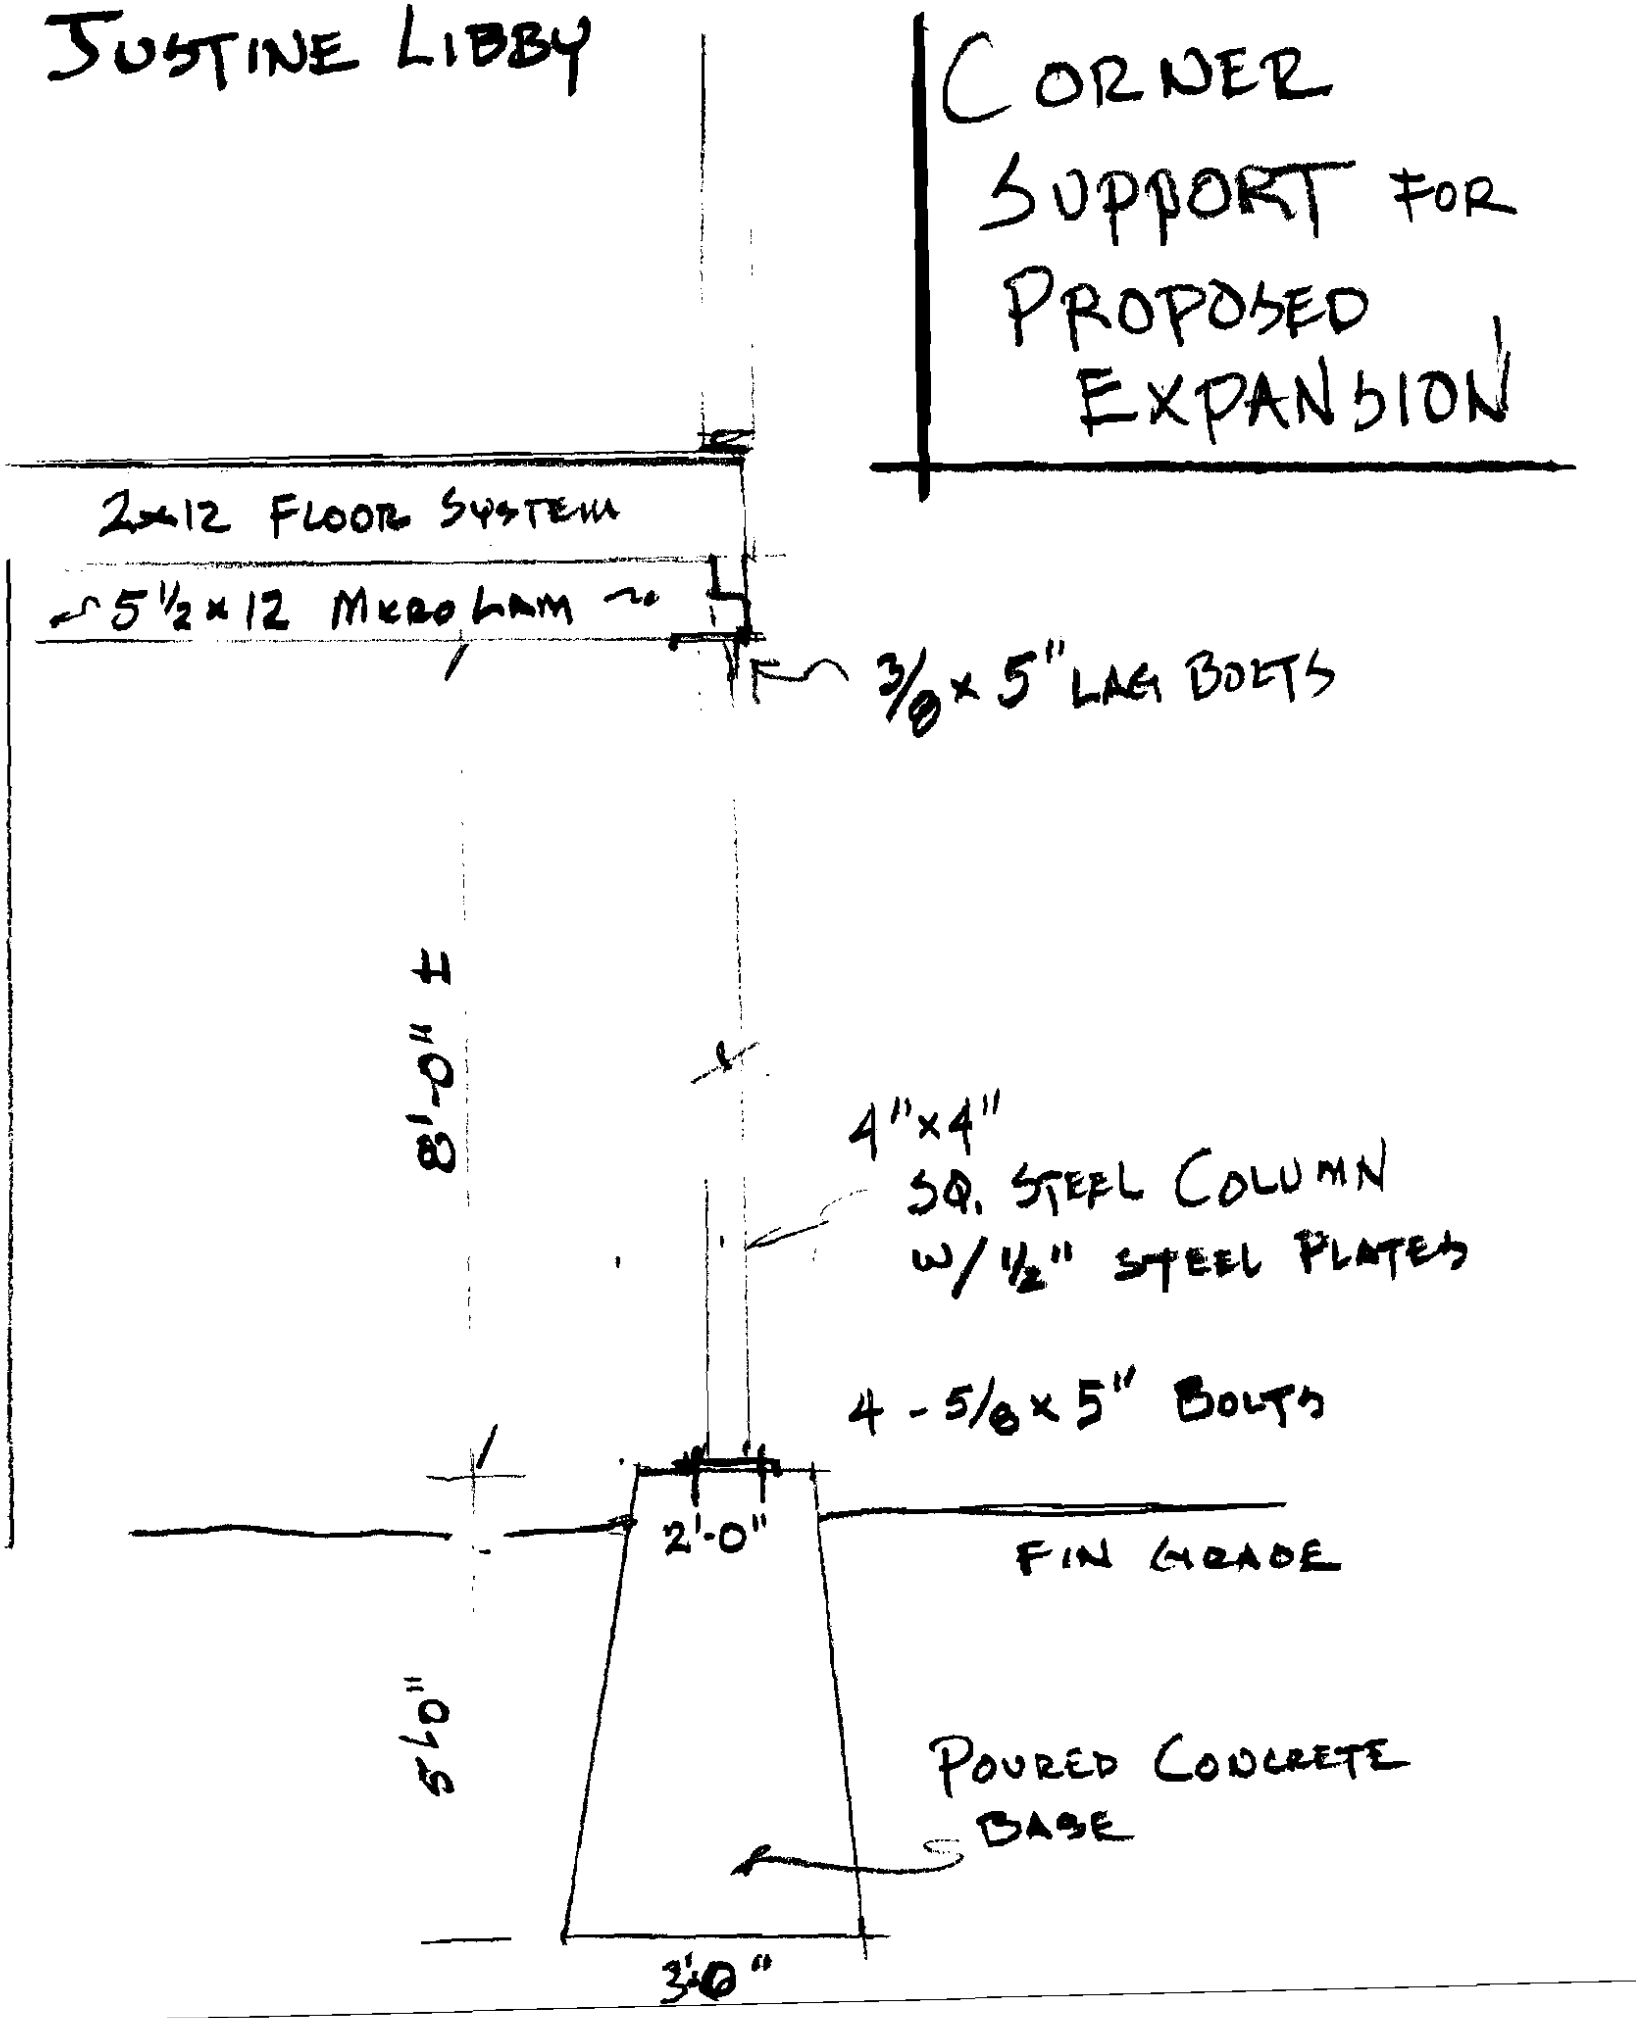 JUSTINE LIBBY
CORNER
SUPPORT FOR
PROPOSED
EXPANSION
2x12 FLOOR SYSTEM
5 1/2 x 12 MICRO LAM
3/8 x 5" LAG BOLTS
8'-0" ±
4" x 4"
SQ. STEEL COLUMN
W/ 1/2" STEEL PLATES
4 - 5/8 x 5" BOLTS
2'-0"
FIN GRADE
5'-0"
POURED CONCRETE
BASE